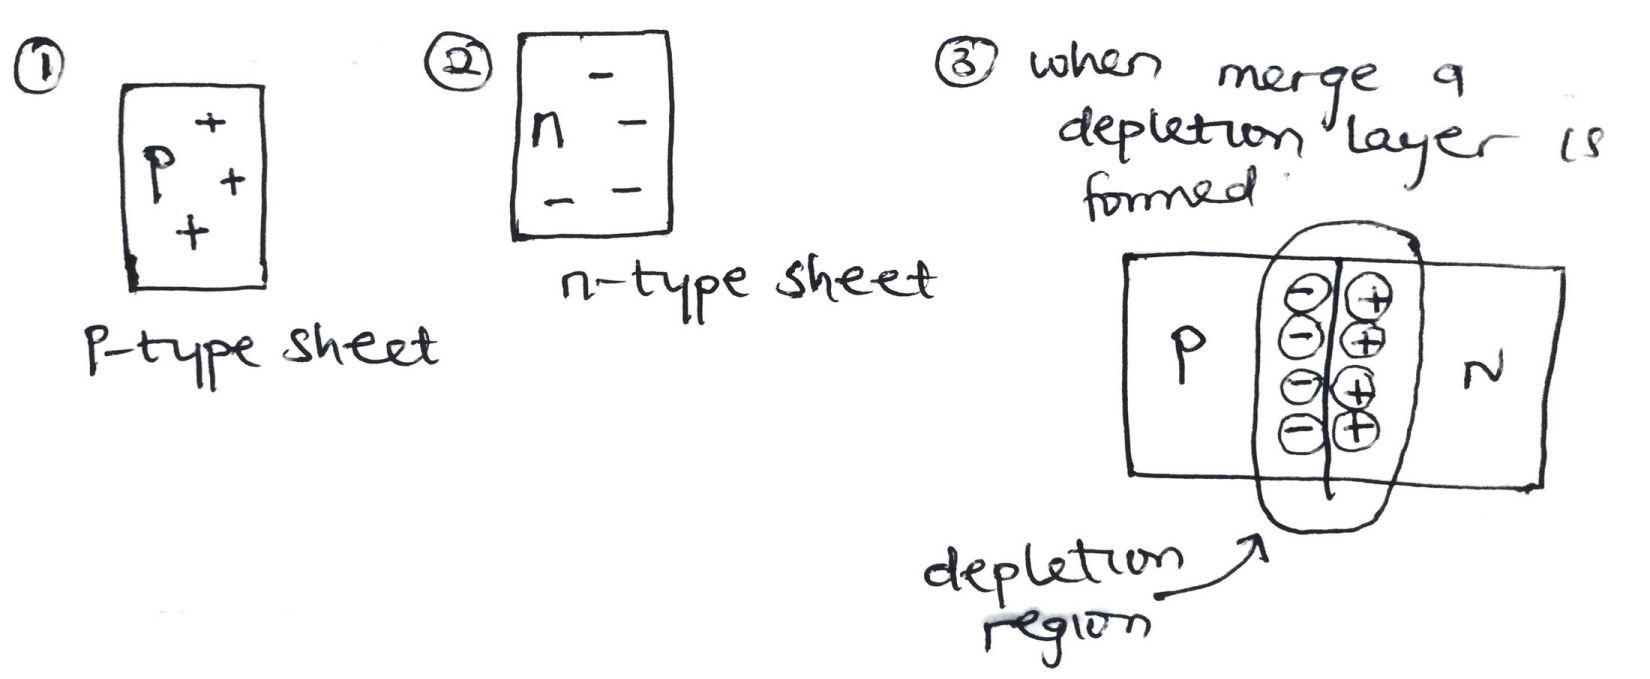 ①
P
+
+
+
P-type sheet
②
n
−
−
−
−
n-type sheet
③ when merge a
depletion layer is
formed
P
N
⊖ ⊕
⊖ ⊕
⊖ ⊕
⊖ ⊕
depletion
region